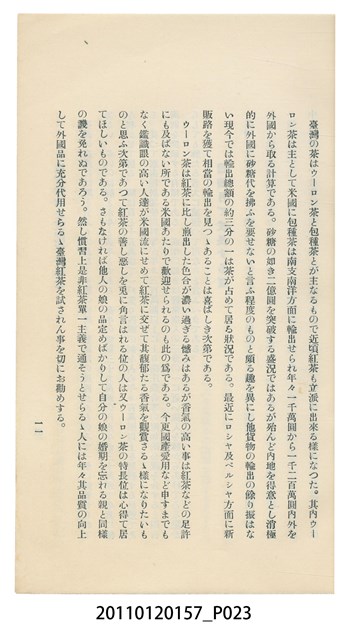 臺灣の茶はウーロン茶と包種茶とが主なるもので近頃紅茶も立派に出來る樣になつた。其内ウー
ロン茶は主として米國に包種茶は南支南洋方面に輸出せられ年々一千萬圓から一千二百萬圓内外を
外國から取る計算である。砂糖の如き二億圓を突破する盛況ではあるが殆んど内地を得意とし消極
的に外國に砂糖代を拂ふを要せないと言ふ程度のものと頗る趣を異にし他貨物の輸出の餘り振はな
い現今では輸出總額の約三分の一は茶が占めて居る狀況である。最近にロシヤ及ペルシヤ方面に新
販路を獲て相當の輸出を見つゝあることは喜ばしき次第である。
ウーロン茶は紅茶に比し煎出した色合が濃い過ぎる憾みはあるが香氣の高い事は紅茶などの足許
にも及ばない所である米國あたりで歡迎せられるのも此の爲である。今更國產愛用など申すまでも
なく鑑識眼の高い人達が米國流にせめて紅茶に交ぜて其馥郁たる香氣を觀賞さるゝ樣になりたいも
のと思ふ次第であつて紅茶の善し惡しを兎に角言はれる位の人は又ウーロン茶の特長位は心得て居
てほしいものである。さもなければ他人の娘の品定めばかりして自分の娘の婚期を忘れる親と同樣
の譏を免れぬであらう。然し慣習上是非紅茶單一主義で通そうとせらるゝ人には年々其品質の向上
して外國品に充分代用せらるゝ臺灣紅茶を試されん事を切にお勸めする。
一一
20110120157_P023